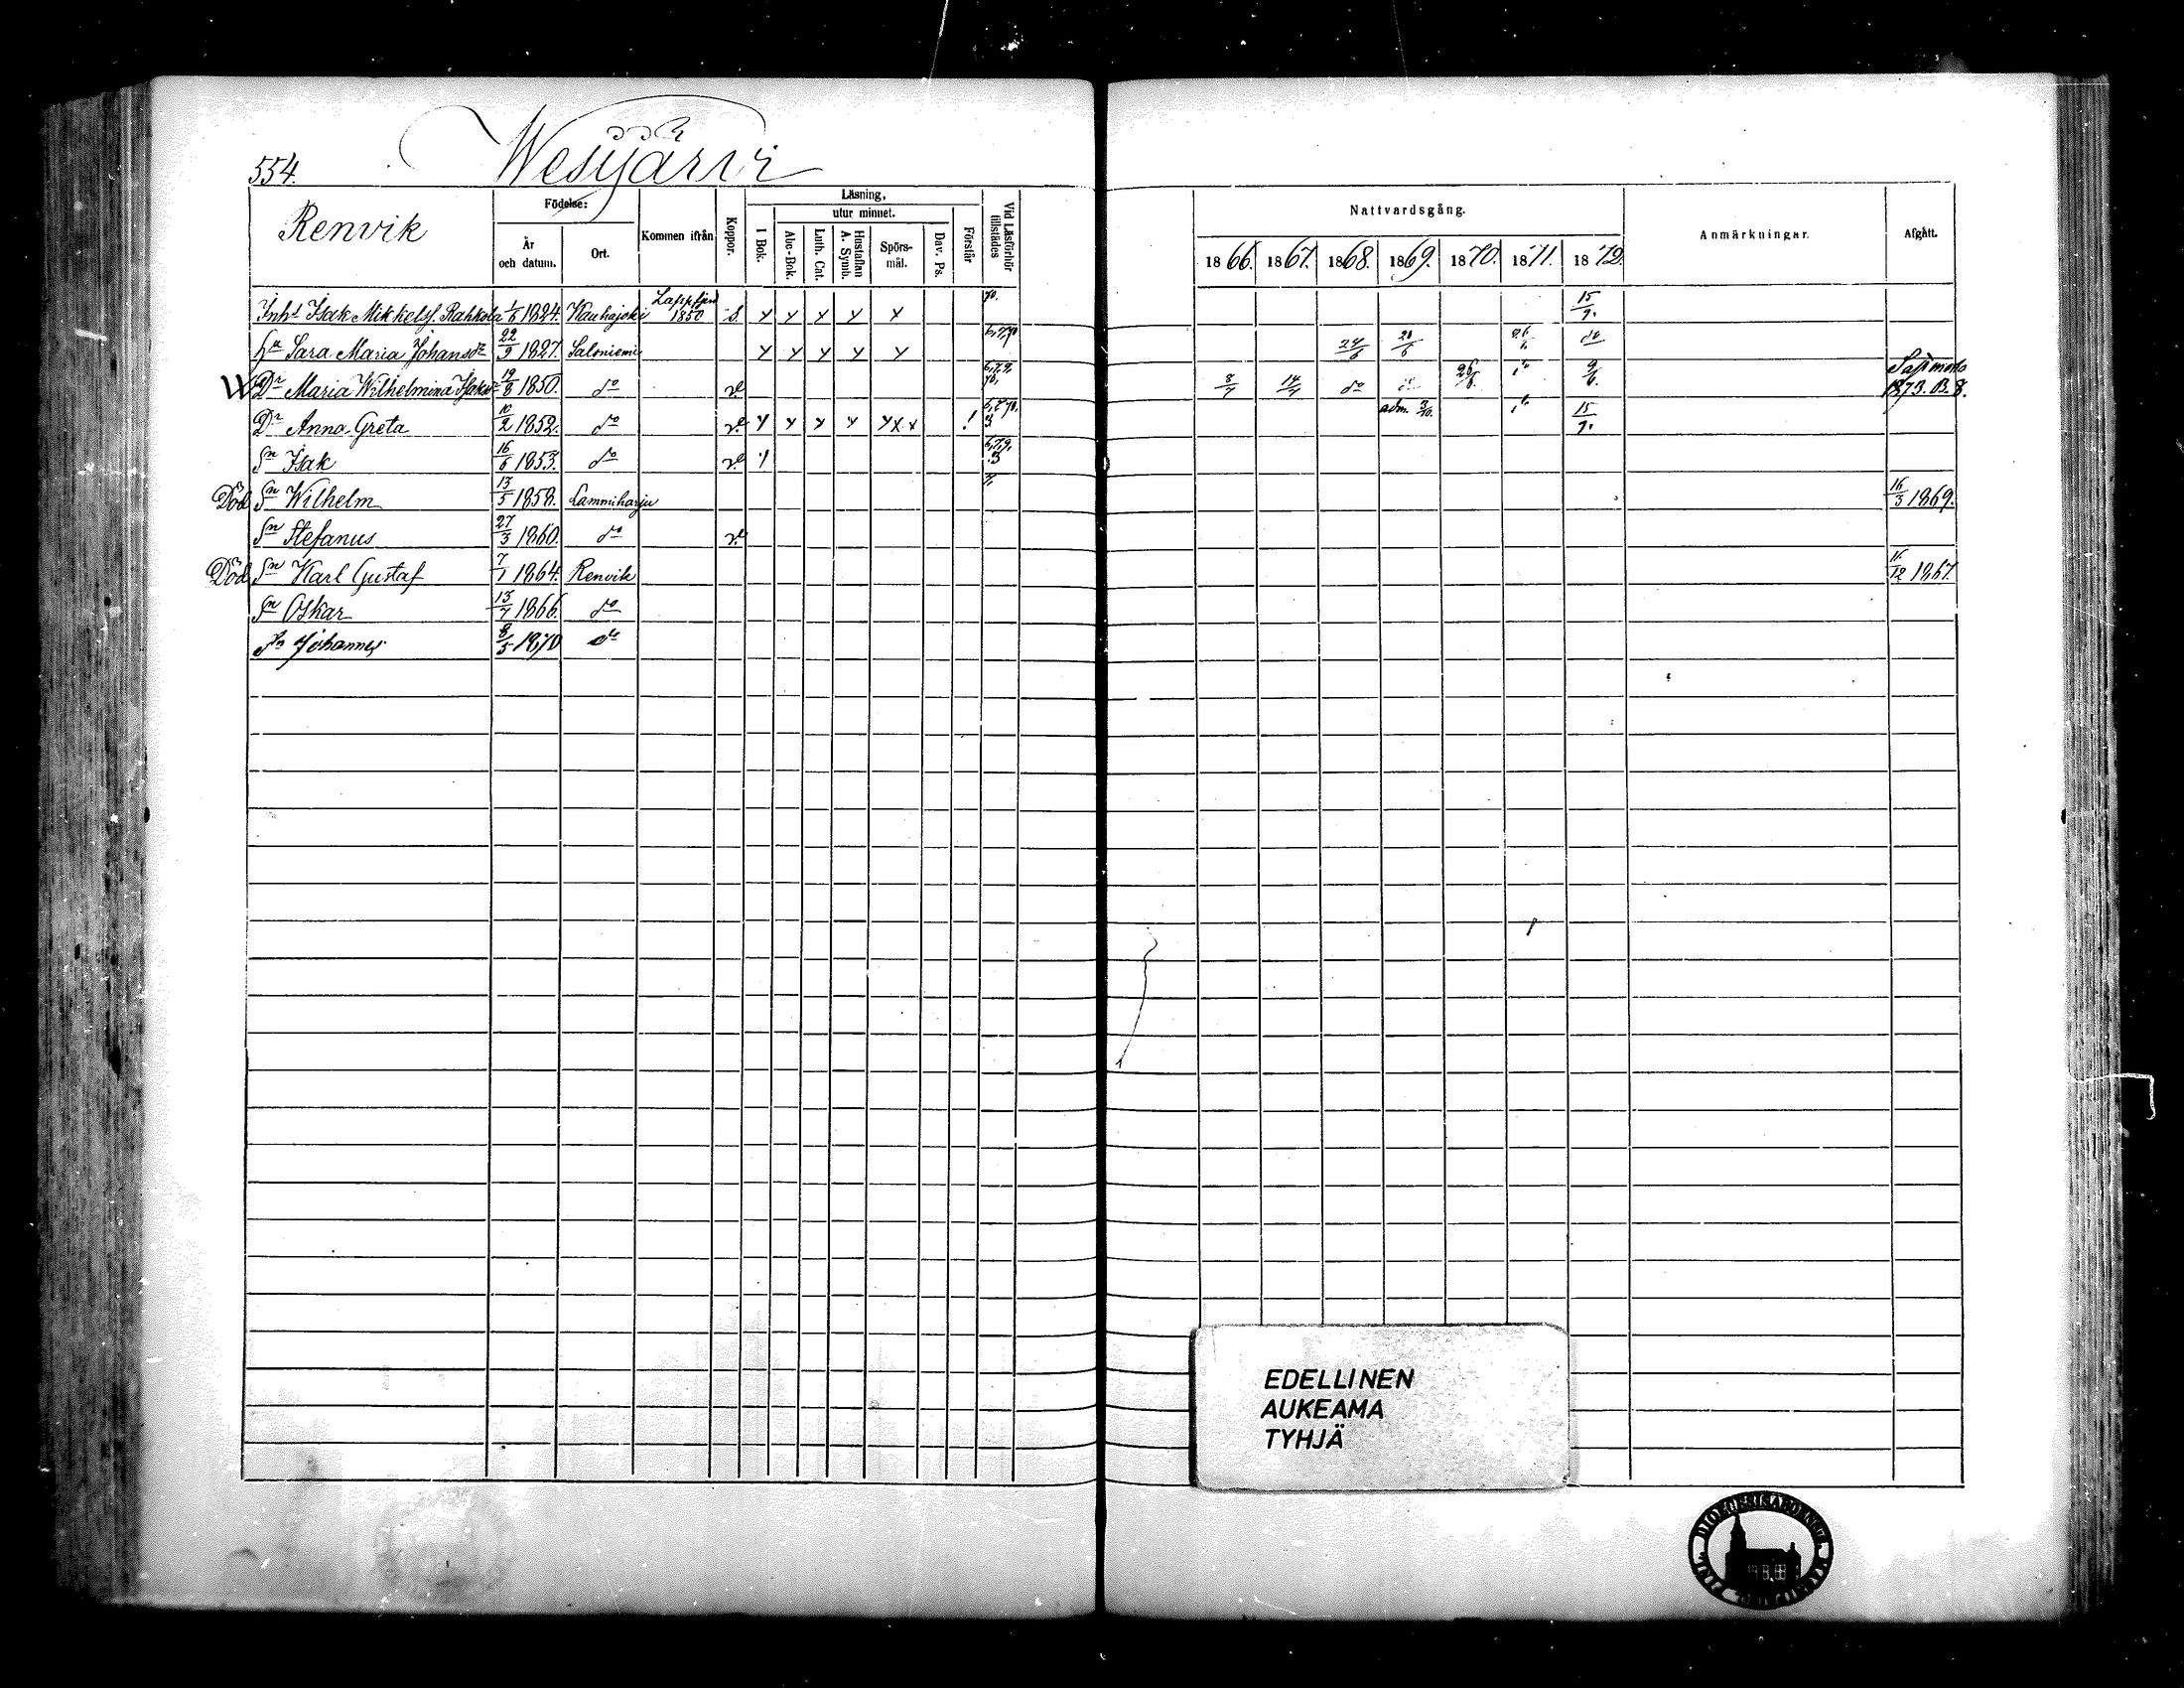 554.
Wesijärvi
Renvik
Födelse:
År och datum.
Ort.
Kommen ifrån
Koppor.
Läsning,
I Bok.
utur minnet.
Abc-Bok.
Luth. Cat.
Hustaflan A. Symb.
Spörsmål.
Dav. Ps.
Förstår
Vid Läsförhör tillstädes
Nattvardsgång.
1866. 1867. 1868. 1869. 1870. 1871. 1872.
Anmärkningar.
Afgått.
Inhs Isak Mikkelss. Rahkola 1/6 1824. Kauhajoki Lappfjerd 1850 s. y y y y x 70. 15/9.
Hu Sara Maria Johansdr 22/9 1827. Saloniemi y y y y y 24/6 20/6 do
W Dr Maria Wilhelmina Isaksdr 19/8 1850. do v. 8/7 14/7 do 26/6. 9/6. Sastmola 1873. B. 8.
Dr Anna Greta 10/2 1852. do v. y y y y y x x ! adm. 3/10. 15/9.
Sn Isak 16/6 1853. do v. y
Död Sn Wilhelm 13/5 1858. Lammiharju 16/3 1869.
Sn Stefanus 27/3 1860. do v.
Död Sn Karl Gustaf 7/1 1864. Renvik 16/12 1867.
Sn Oskar 13/7 1866. do
Sn Johannes 8/5 1870 do
EDELLINEN
AUKEAMA
TYHJÄ